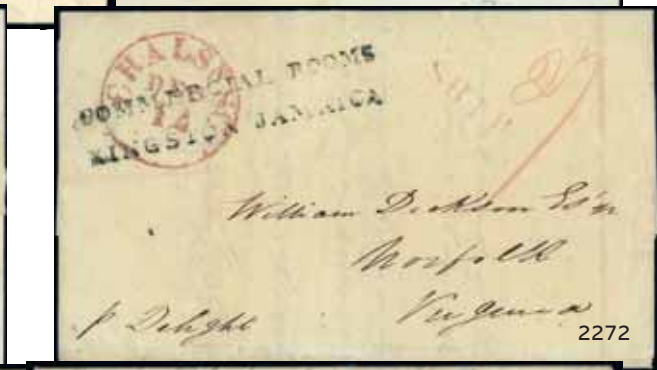 CHALSTON
COMMERCIAL ROOMS
KINGSTON JAMAICA
SHIP
William Dickson Esqr
Norfolk
Virginia
p Delight
2272